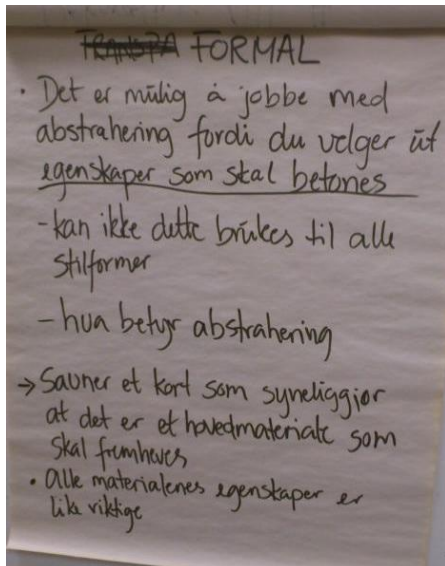 FORMAL
• Det er mulig å jobbe med
abstrahering fordi du velger ut
egenskaper som skal betones
- kan ikke dette brukes til alle
stilformer
- hva betyr abstrahering
→ Savner et kort som syneliggjør
at det er et hovedmateriale som
skal fremheves
• Alle materialenes egenskaper er
like viktige